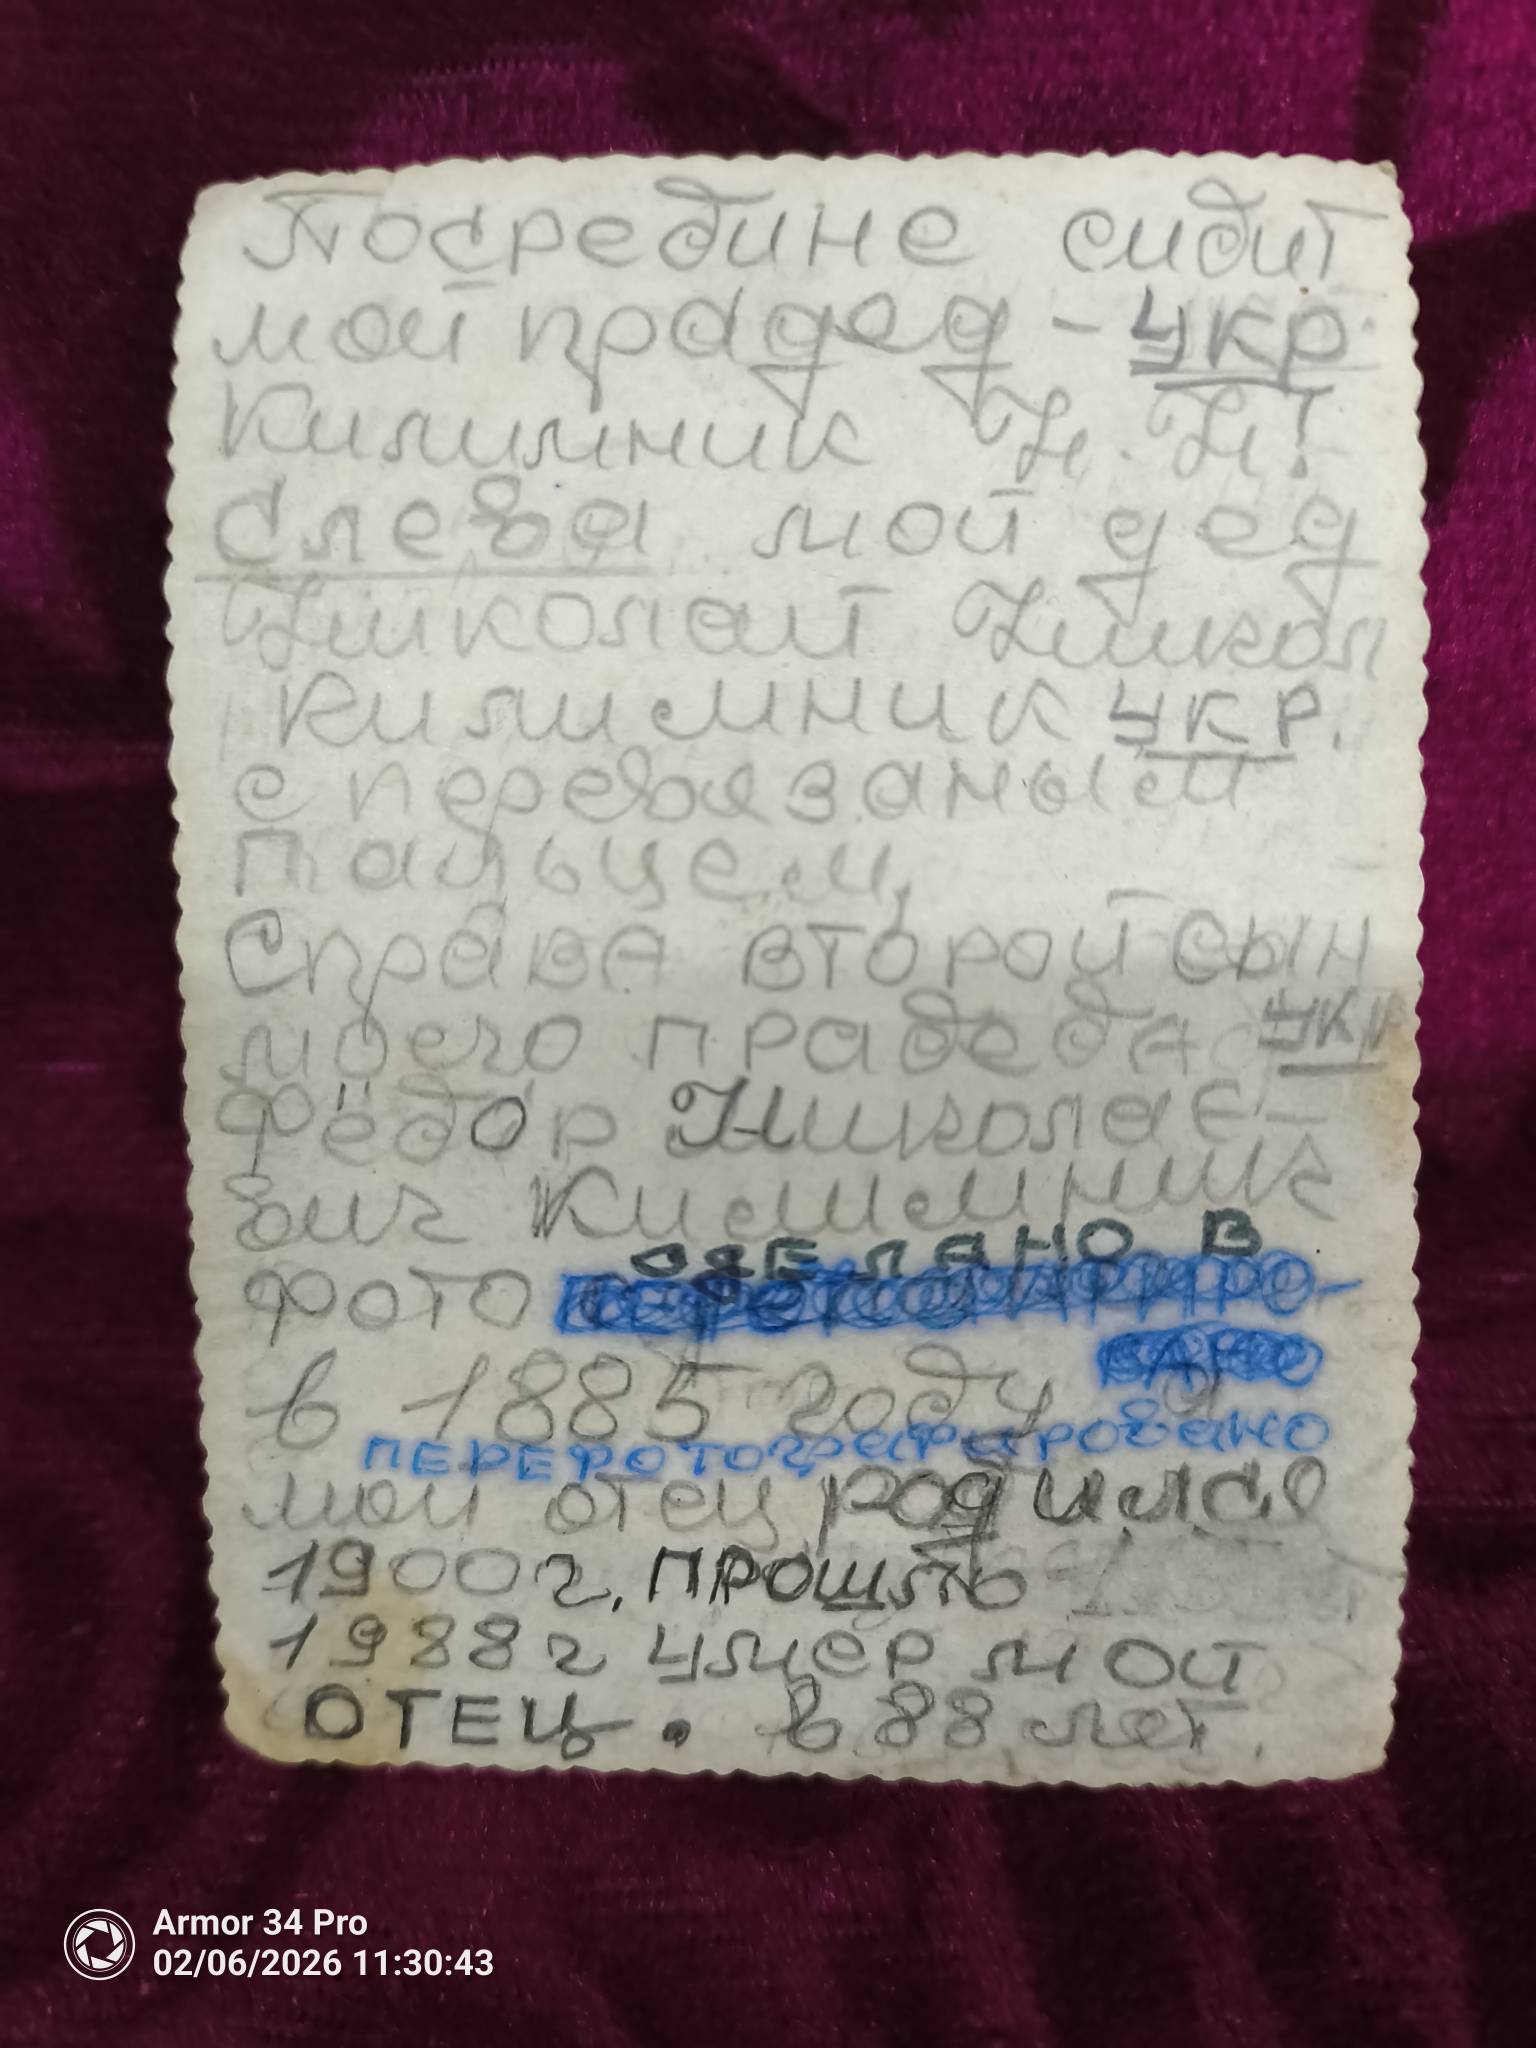 Посредине сидит
мой прадед - укр.
Килимник Н. Н!
Слева мой дед
Николай Никол
Килимник укр.
с перевязаным
пальцем,
Справа второй сын
моего прадеда укр
Фёдор Николае-
вич Килимник
сделано в
фото
в 1885 году
перефотографировано
мой отец родился
1900 г. прошло
1988 г умер мой
отец. в 88 лет.
Armor 34 Pro
02/06/2026 11:30:43